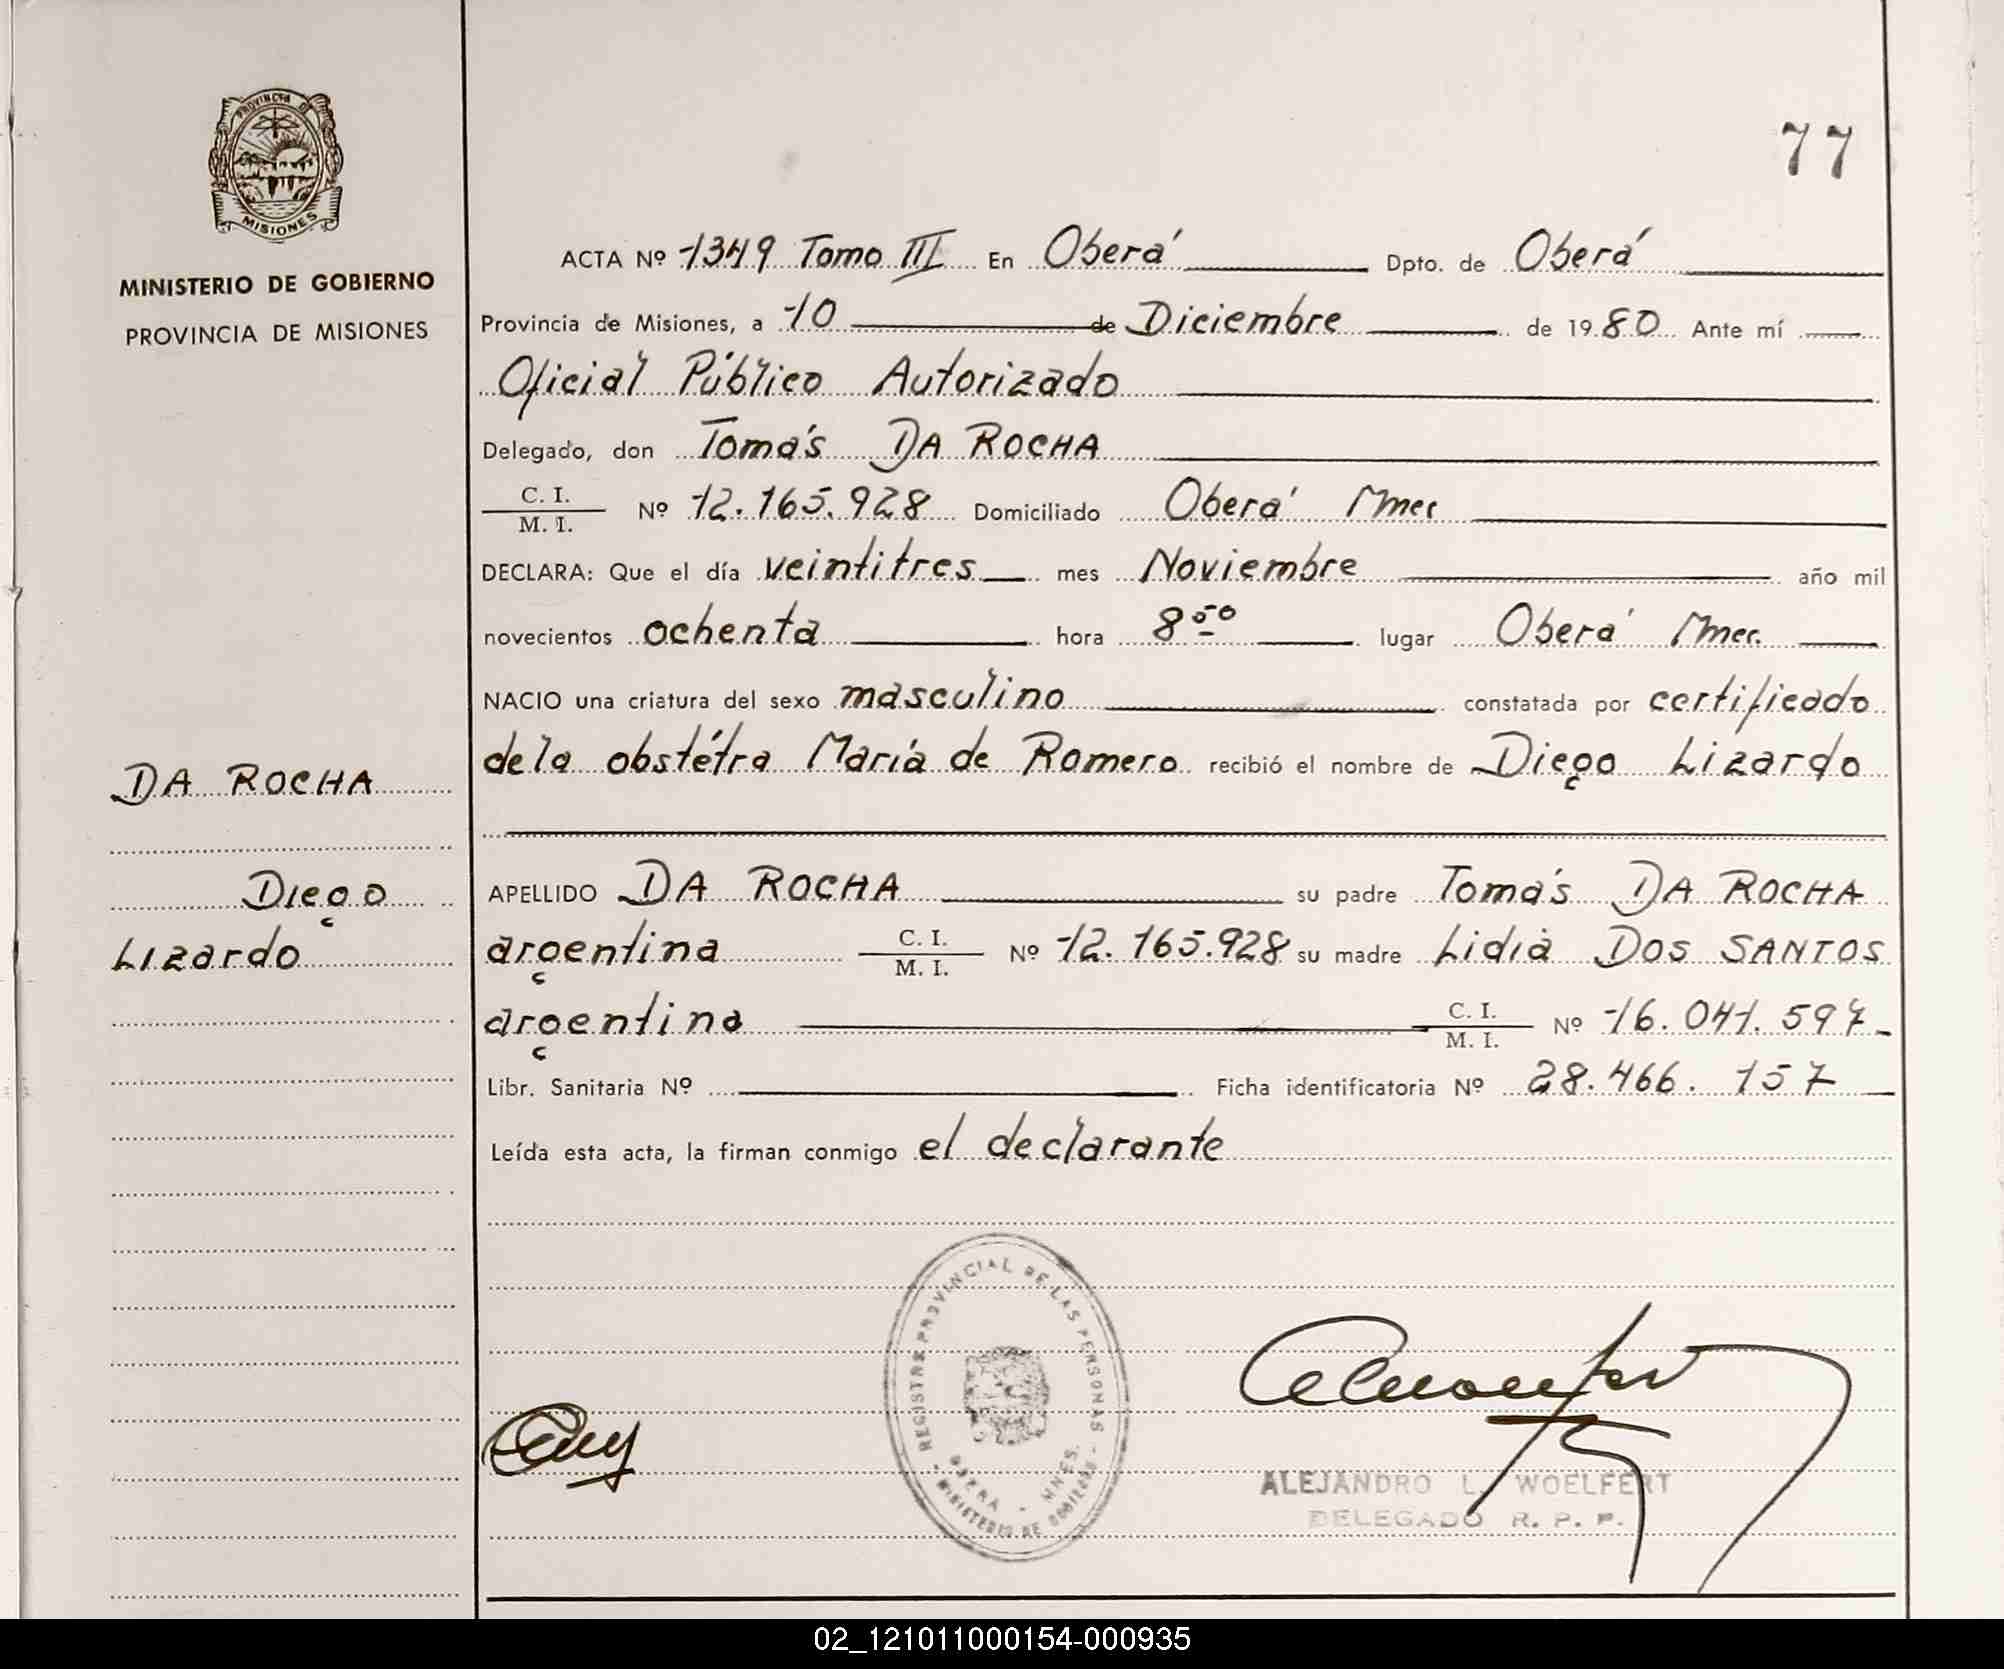 PROVINCIA DE
MISIONES
MINISTERIO DE GOBIERNO
PROVINCIA DE MISIONES
77
ACTA Nº 1349 Tomo III En Oberá Dpto. de Oberá
Provincia de Misiones, a 10 de Diciembre de 1980 Ante mí
Oficial Público Autorizado
Delegado, don Tomás DA ROCHA
C. I.
M. I.
Nº 12.165.928 Domiciliado Oberá Mnes
DECLARA: Que el día veintitres mes Noviembre año mil
novecientos ochenta hora 8 50 lugar Oberá Mnes.
NACIO una criatura del sexo masculino constatada por certificado
de la obstétra María de Romero recibió el nombre de Diego Lizardo
DA ROCHA
Diego
Lizardo
APELLIDO DA ROCHA su padre Tomás DA ROCHA
argentina C. I. M. I. Nº 12.165.928 su madre Lidia DOS SANTOS
argentina C. I. M. I. Nº 16.041.597
Libr. Sanitaria Nº Ficha identificatoria Nº 28.466.157
Leída esta acta, la firman conmigo el declarante
REGISTRO PROVINCIAL DE LAS PERSONAS
OBERA - MNES.
MINISTERIO DE GOBIERNO
ALEJANDRO L. WOELFERT
DELEGADO R. P. P.
02_121011000154-000935